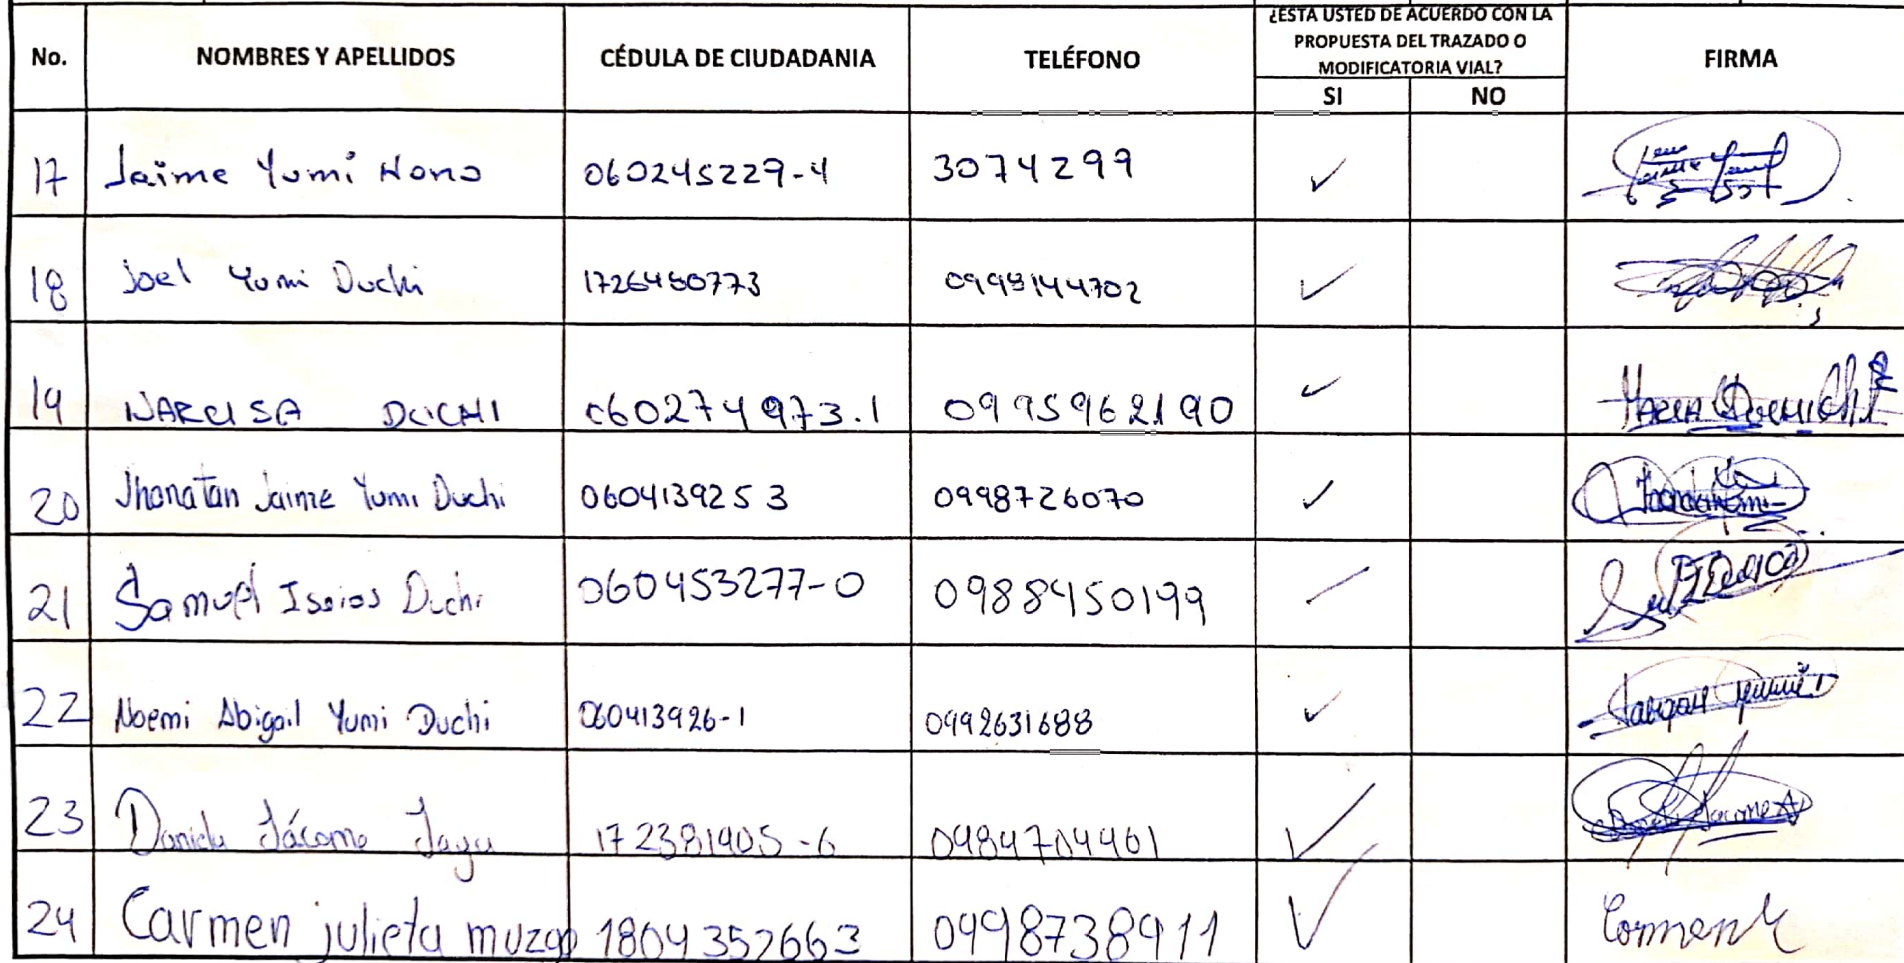 No. NOMBRES Y APELLIDOS CÉDULA DE CIUDADANIA TELÉFONO ¿ESTA USTED DE ACUERDO CON LA PROPUESTA DEL TRAZADO O MODIFICATORIA VIAL? FIRMA
SI NO
17 Jaime Yumi Ñono 060245229-4 3074299 ✓
18 Joel Yumi Duchi 1726480773 0998144702 ✓
19 NARCISA DUCHI 060274973.1 0995962190 ✓
20 Jhonatan Jaime Yumi Duchi 0604139253 0998726070 ✓
21 Samuel Isaias Duchi 060453277-0 0988450199
22 Noemi Abigail Yumi Duchi 060413926-1 0992631688 ✓
23 Daniela Jácome 172381905-6 0984704461 ✓
24 Carmen julieta muzo 1804352663 0998738911 ✓ Carmen